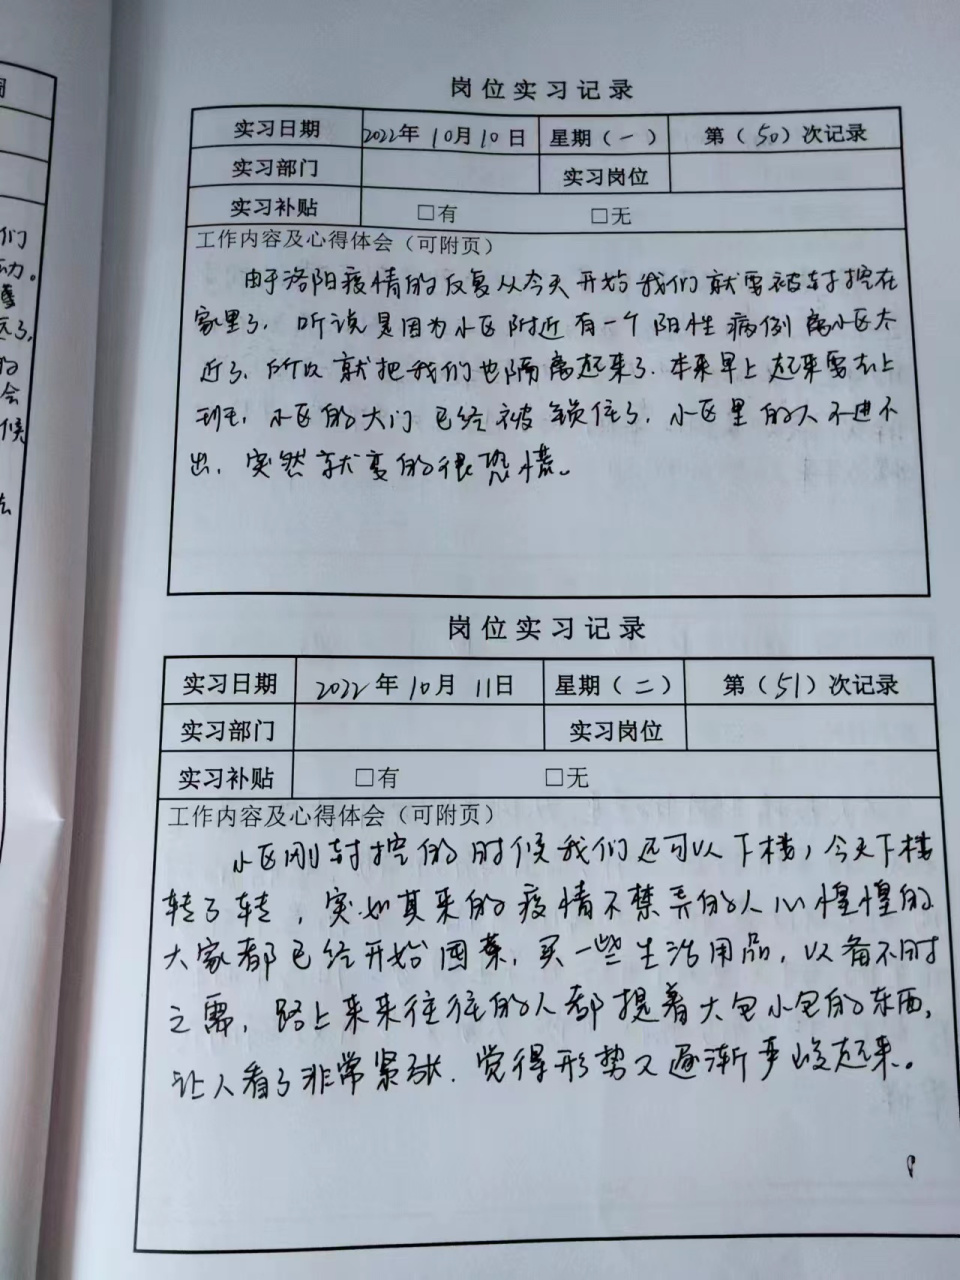 们
动。
远了,
的
会
候
岗位实习记录
实习日期 2022年 10月10日 星期（一） 第（50）次记录
实习部门 实习岗位
实习补贴 □有 □无
工作内容及心得体会（可附页）
由于洛阳疫情的反复从今天开始我们就要被封控在
家里了，听说是因为小区附近有一个阳性病例离小区太
近了，所以就把我们也隔离起来了.本来早上起来要去上
班，小区的大门已经被锁住了，小区里的人不进不
出，突然就变的很恐慌。
岗位实习记录
实习日期 2022年10月 11日 星期（二） 第（51）次记录
实习部门 实习岗位
实习补贴 □有 □无
工作内容及心得体会（可附页）
小区刚封控的时候我们还可以下楼，今天下楼
转了转，突如其来的疫情不禁弄的人心惶惶的
大家都已经开始囤菜，买一些生活用品，以备不时
之需，路上来来往往的人都提着大包小包的东西，
让人看了非常紧张.觉得形势又逐渐严峻起来。